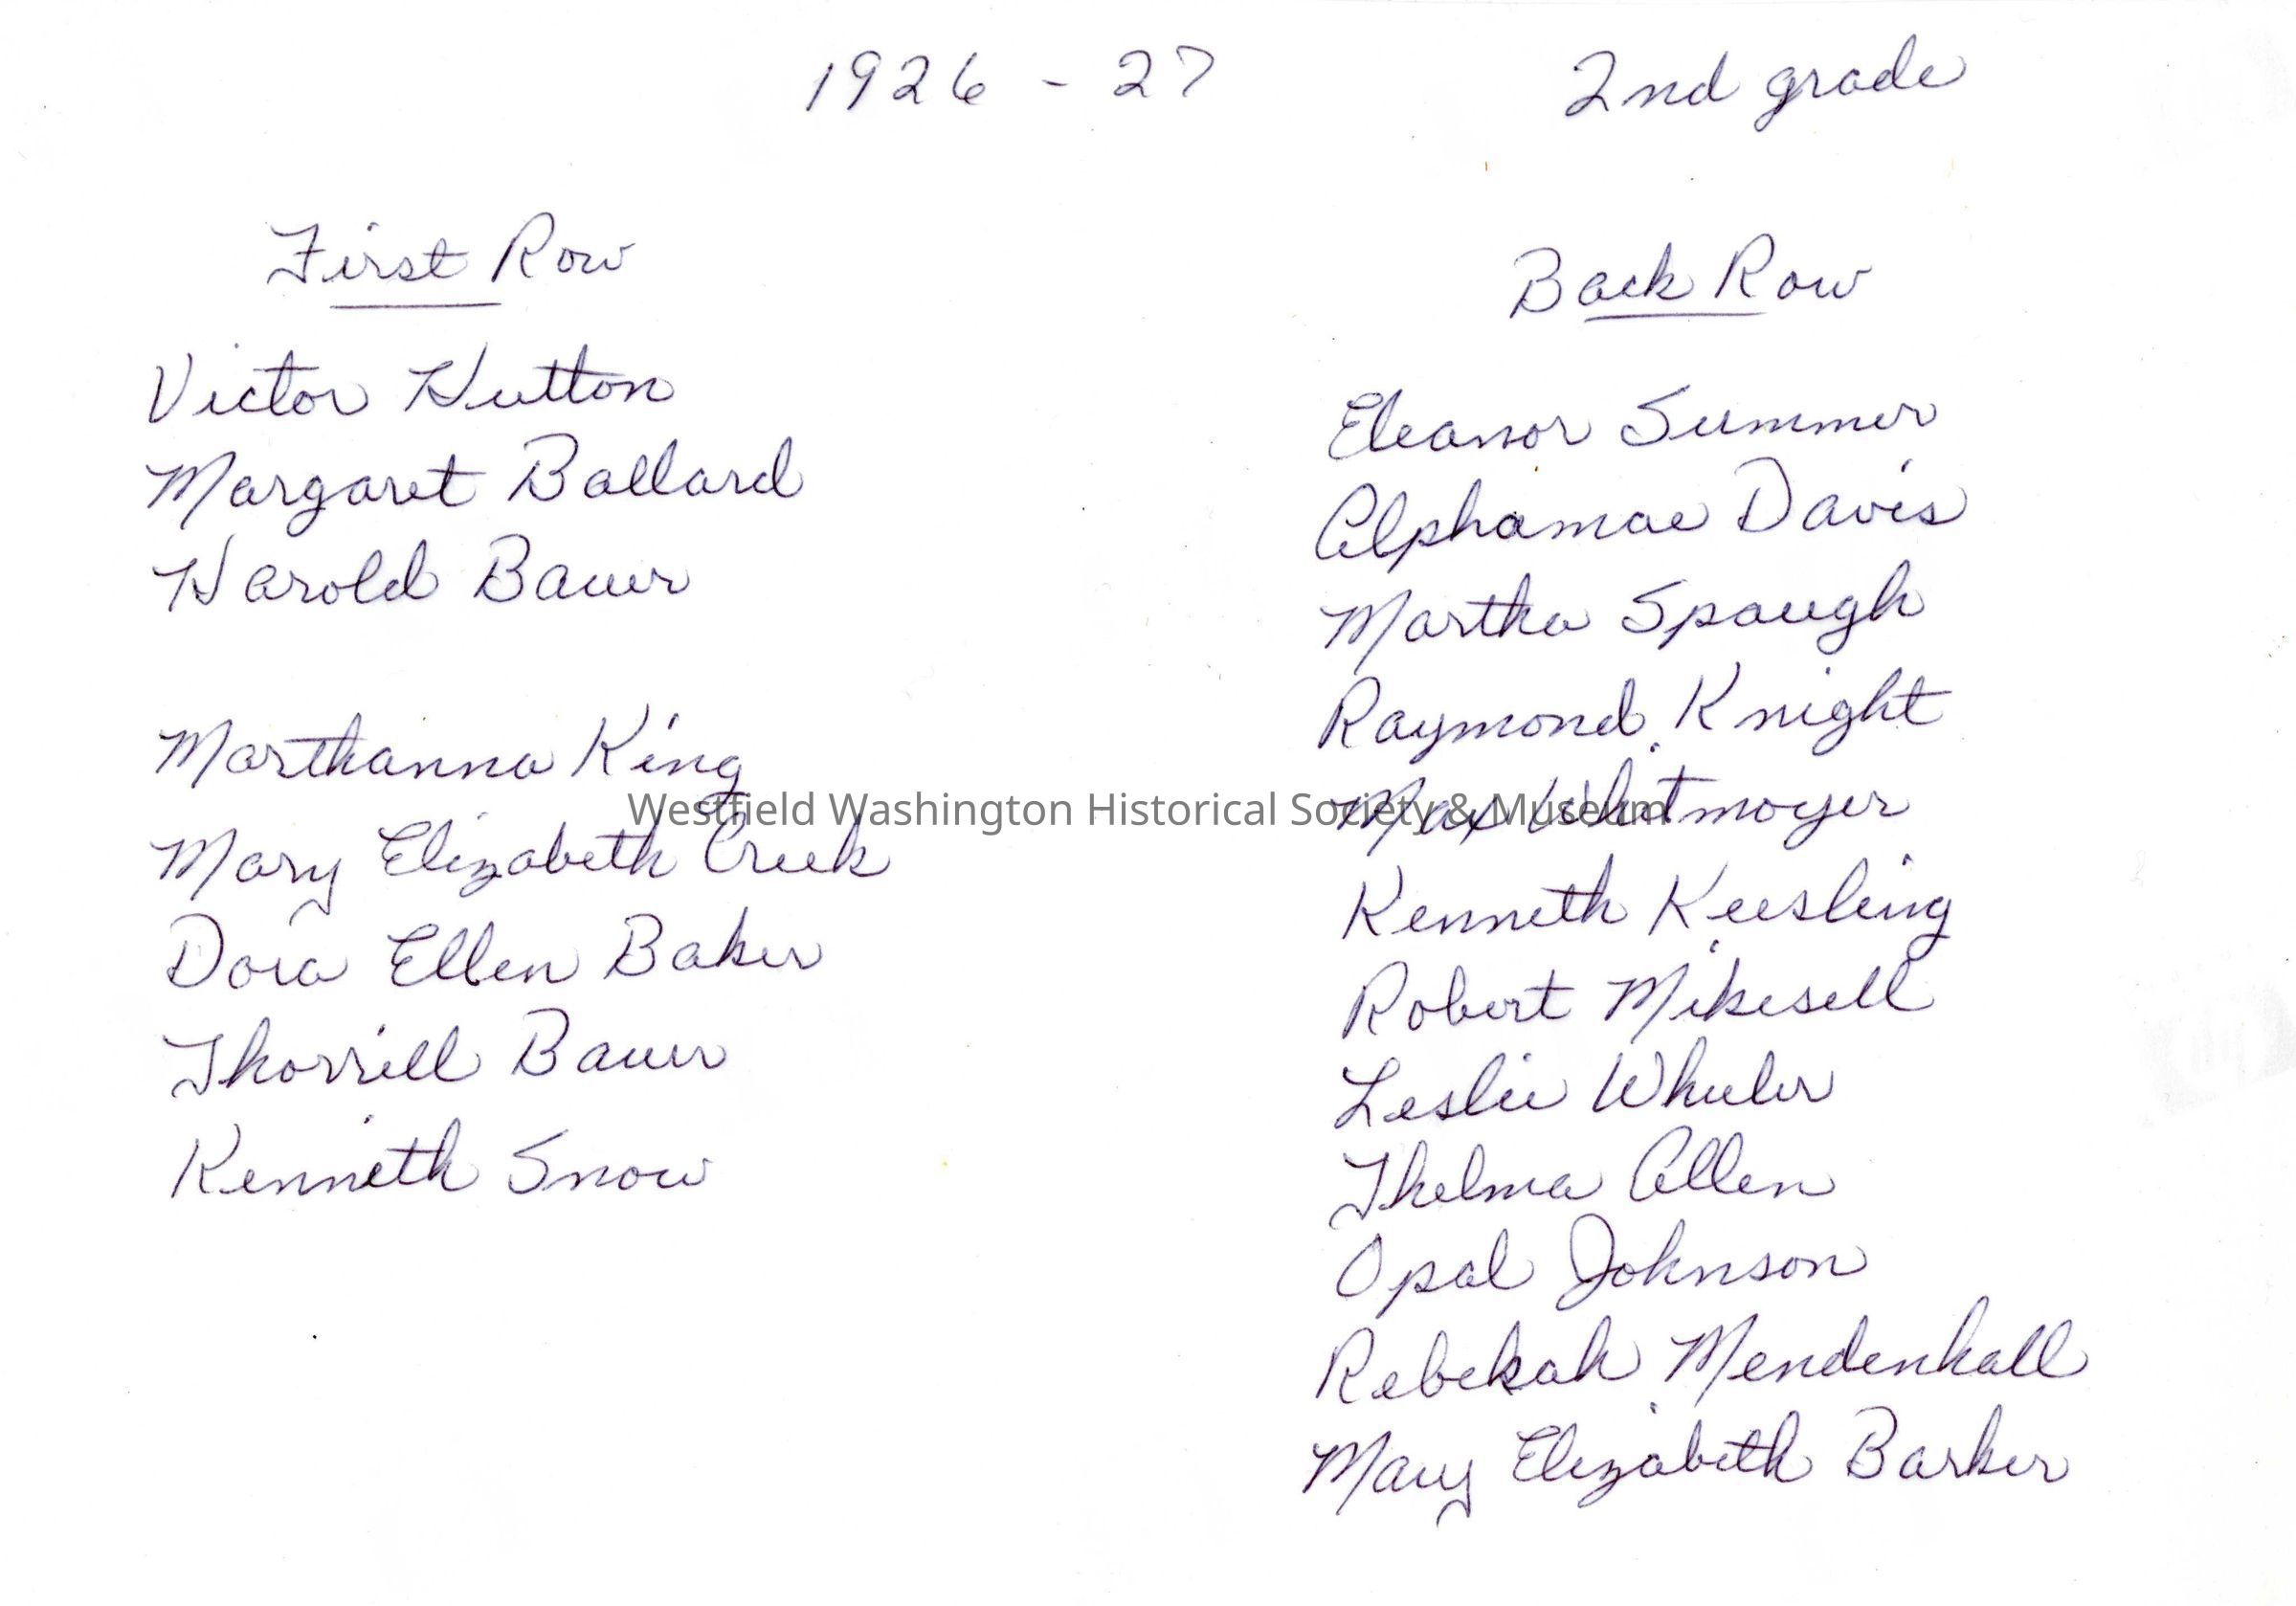 1926 - 27 2nd grade
First Row
Victor Hutton
Margaret Ballard
Harold Bauer
Marthanna King
Mary Elizabeth Creek
Dora Ellen Baker
Thorrill Bauer
Kenneth Snow
Back Row
Eleanor Summer
Alphamae Davis
Martha Spaugh
Raymond Knight
Max Whitmoyer
Kenneth Keesling
Robert Mikesell
Leslie Wheeler
Thelma Allen
Opal Johnson
Rebekah Mendenhall
Mary Elizabeth Barker
Westfield Washington Historical Society & Museum